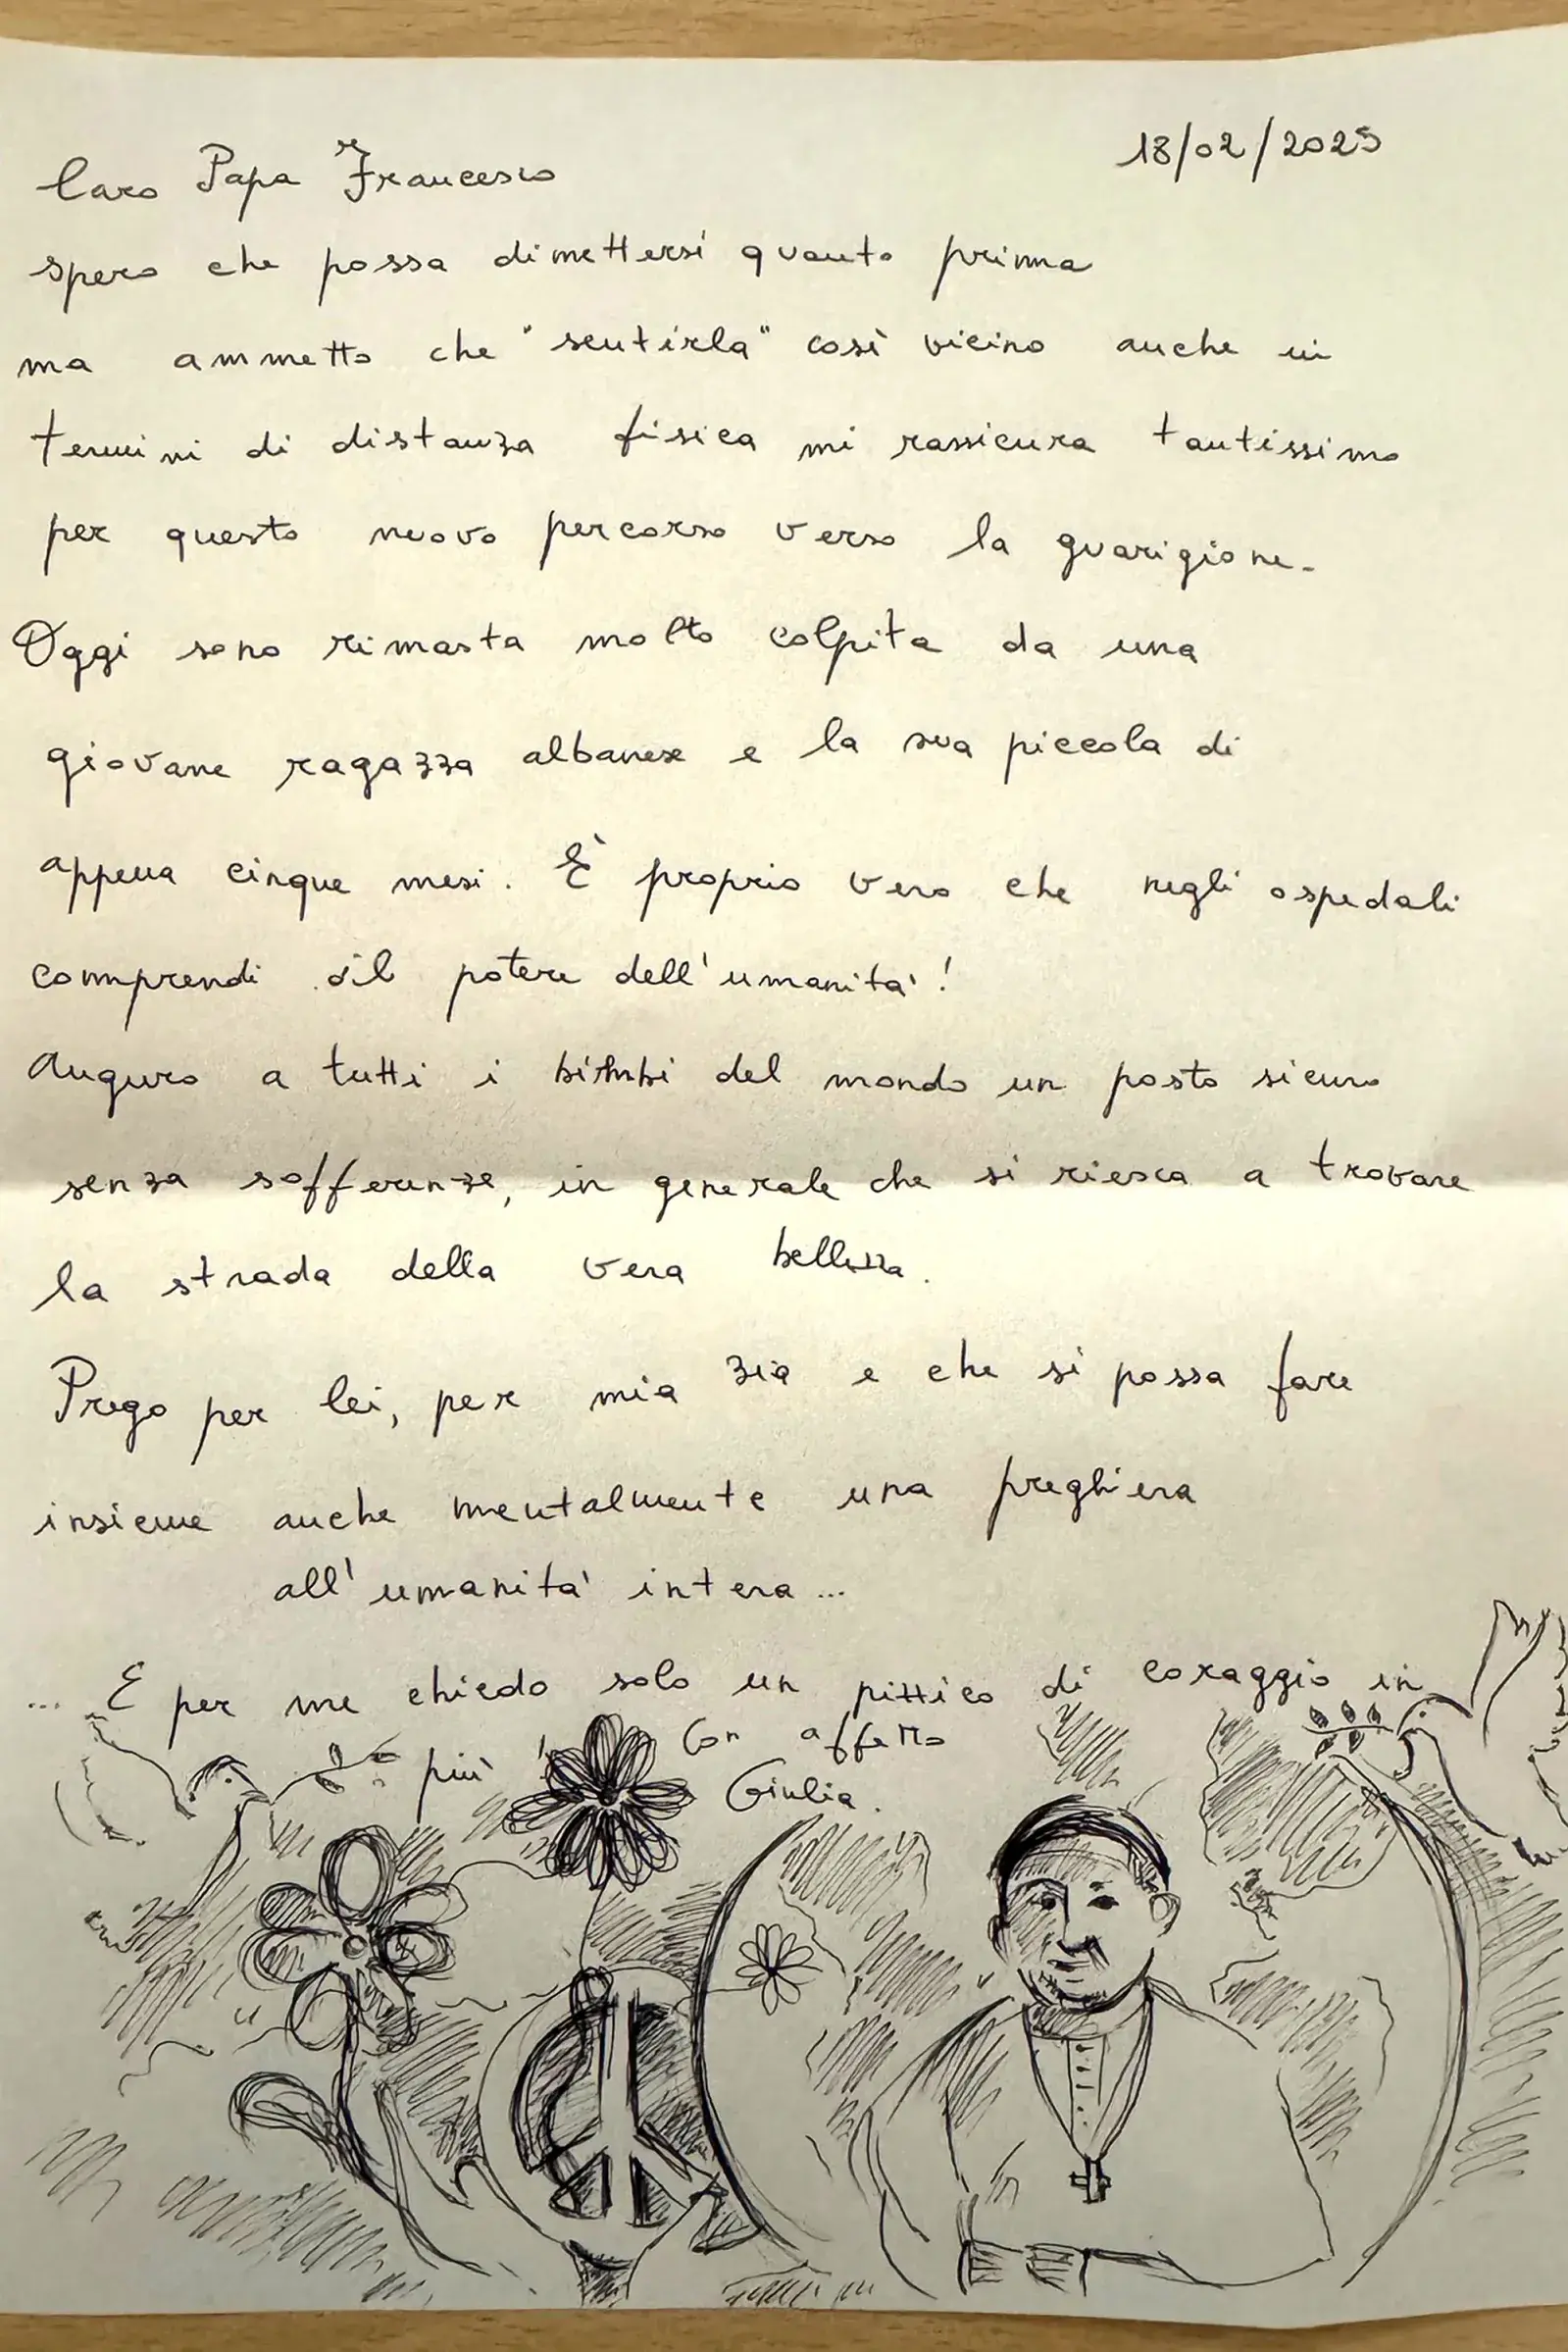 18/02/2025
Caro Papa Francesco
spero che possa dimettersi quanto prima
ma ammetto che "sentirla" così vicino anche in
termini di distanza fisica mi rassicura tantissimo
per questo nuovo percorso verso la guarigione.
Oggi sono rimasta molto colpita da una
giovane ragazza albanese e la sua piccola di
appena cinque mesi. È proprio vero che negli ospedali
comprendi il potere dell'umanità!
Auguro a tutti i bimbi del mondo un posto sicuro
senza sofferenze, in generale che si riesca a trovare
la strada della vera bellezza.
Prego per lei, per mia zia e che si possa fare
insieme anche mentalmente una preghiera
all'umanità intera...
... E per me chiedo solo un pittico di coraggio in
più! Con affetto
Giulia.